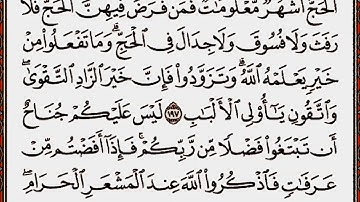 ٱلْحَجُّ أَشْهُرٌ مَّعْلُومَٰتٌ فَمَن فَرَضَ فِيهِنَّ ٱلْحَجَّ فَلَا
رَفَثَ وَلَا فُسُوقَ وَلَا جِدَالَ فِى ٱلْحَجِّ ۗ وَمَا تَفْعَلُوا۟ مِنْ
خَيْرٍ يَعْلَمْهُ ٱللَّهُ ۗ وَتَزَوَّدُوا۟ فَإِنَّ خَيْرَ ٱلزَّادِ ٱلتَّقْوَىٰ ۚ
وَٱتَّقُونِ يَٰٓأُو۟لِى ٱلْأَلْبَٰبِ ١٩٧ لَيْسَ عَلَيْكُمْ جُنَاحٌ
أَن تَبْتَغُوا۟ فَضْلًا مِّن رَّبِّكُمْ ۚ فَإِذَآ أَفَضْتُم مِّنْ
عَرَفَٰتٍ فَٱذْكُرُوا۟ ٱللَّهَ عِندَ ٱلْمَشْعَرِ ٱلْحَرَامِ ۖ